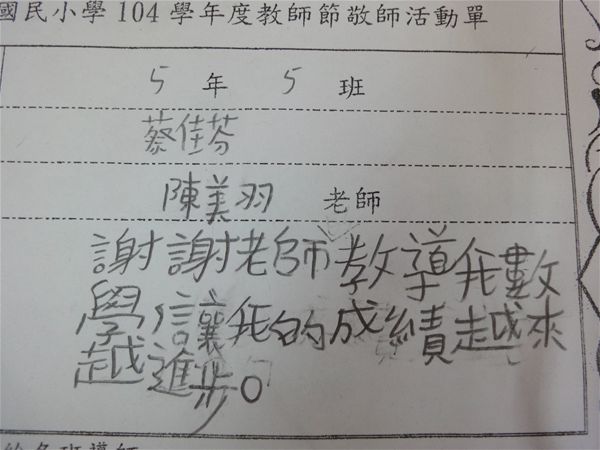 國民小學 104 學年度教師節敬師活動單
5 年 5 班
蔡佳芬
陳美羽 老師
謝謝老師教導我數
學,讓我的成績越來
越進步。